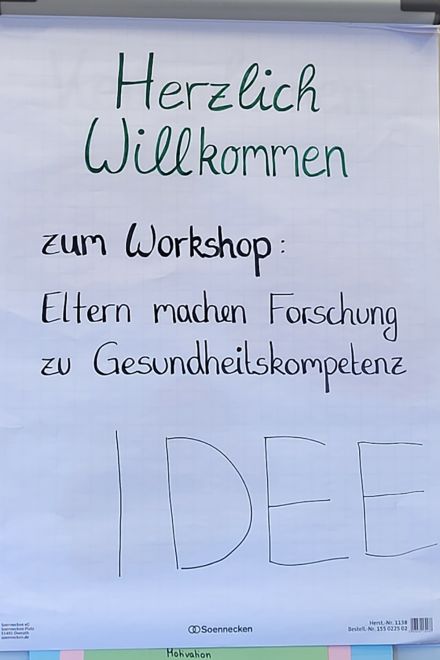 Herzlich
Willkommen
zum Workshop:
Eltern machen Forschung
zu Gesundheitskompetenz
IDEE
Soennecken eG
Soennecken Platz
51491 Overath
soennecken.de
Soennecken
Herst.-Nr. 1138
Bestell.-Nr. 155 0225 02
Motivation